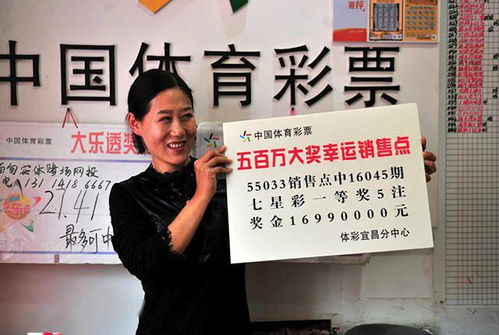 中国体育彩票
中国体育彩票
五百万大奖幸运销售点
55033销售点中16045期
七星彩一等奖5注
奖金16990000元
体彩宜昌分中心
大乐透奖
21.41
最多可中